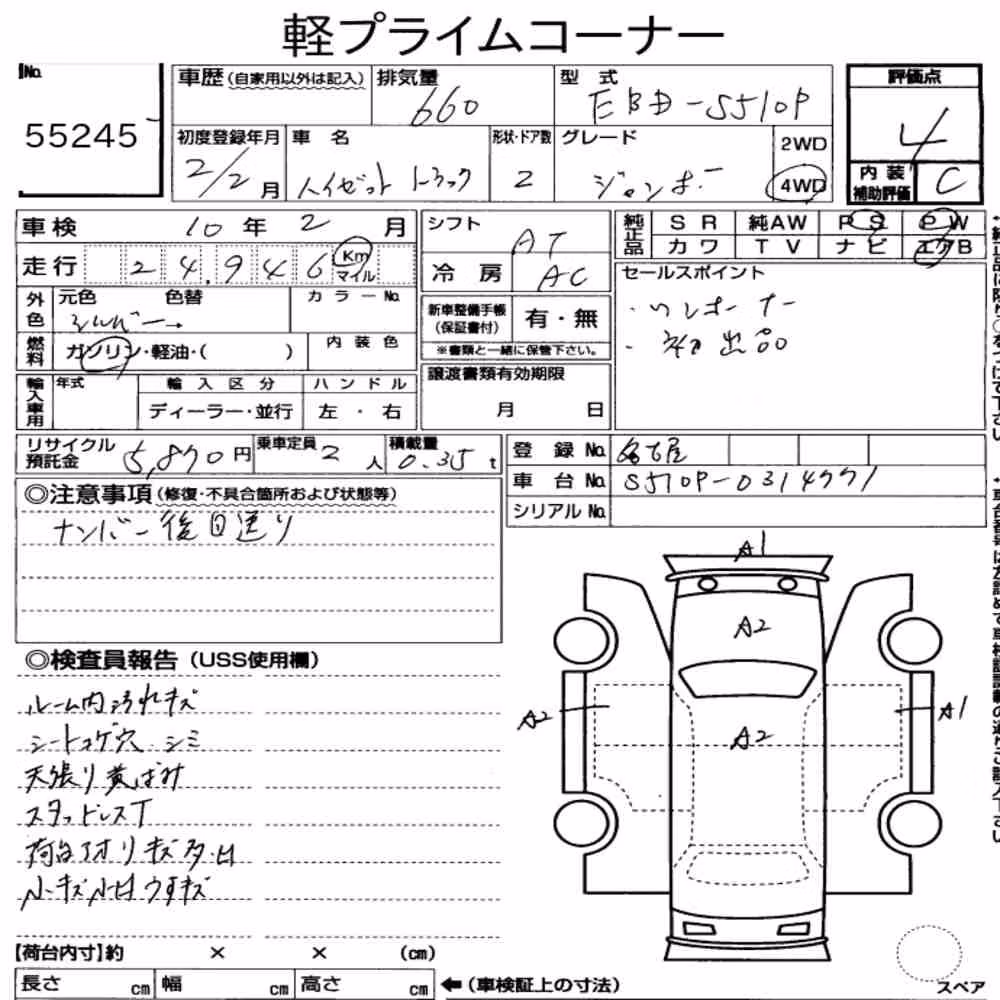 軽プライムコーナー
No. 55245
車歴(自家用以外は記入)
排気量 660
型式 EBD-S510P
評価点 4
初度登録年月 2/2月
車名 ハイゼットトラック
形状・ドア数 2
グレード ジャンボ
2WD
4WD
内装補助評価 C
車検 10年2月
走行 24,946 Km マイル
シフト AT
冷房 AC
純正品 SR 純AW PS PW
カワ TV ナビ エアB
外色 元色 色替 カラーNo.
シルバー
燃料 ガソリン・軽油・( )
内装色
新車整備手帳(保証書付) 有・無
※書類と一緒に保管下さい。
セールスポイント
・ワンオーナー
・初出品
輸入車用 年式 輸入区分 ハンドル
ディーラー・並行 左・右
譲渡書類有効期限
月 日
リサイクル預託金 5,870円
乗車定員 2人
積載量 0.35t
登録No. 名古屋
車台No. S510P-0314771
シリアルNo.
◎注意事項(修復・不具合箇所および状態等)
ナンバー後日送り
◎検査員報告(USS使用欄)
ルーム内汚れキズ
シートコゲ穴 シミ
天張り黄ばみ
スタッドレスT
荷台アオリキズ多・凹
小キズ小凹ウすキズ
A1
A2
A2
A2
A1
【荷台内寸】約 × × (cm)
長さ cm 幅 cm 高さ cm
←(車検証上の寸法)
スペア